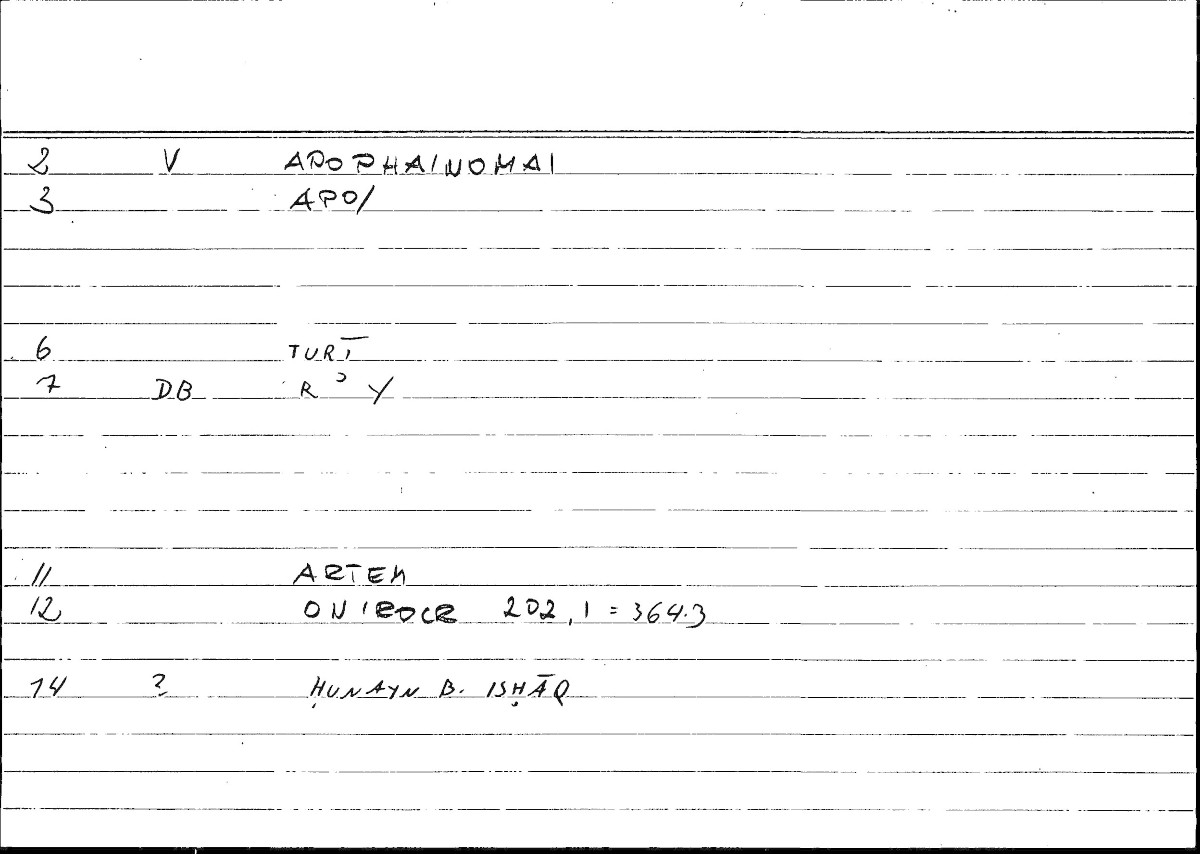 2 V APOPHAINOMAI
3 APO/
6 TURĪ
7 DB R ʾ Y
11 ARTEM
12 ONIROCR 202,1 = 364.3
14 ? ḤUNAYN B. ISḤĀQ